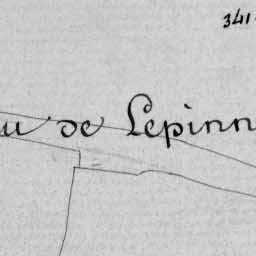 341
u de Lepinn